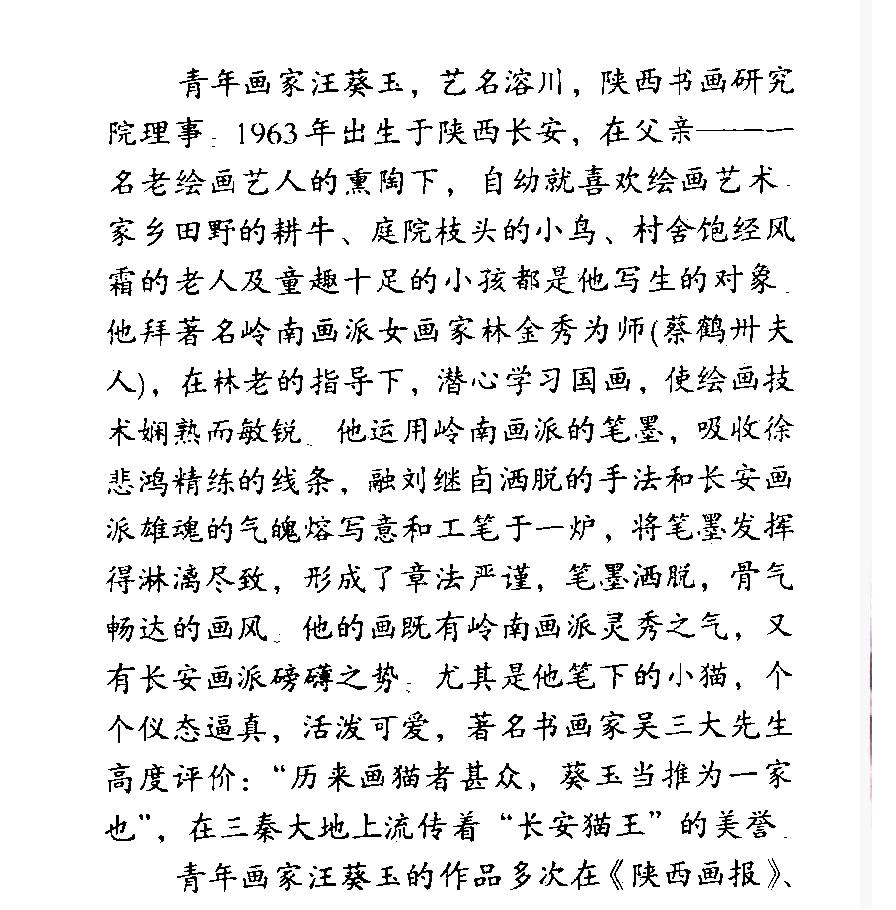 青年画家汪葵玉，艺名溶川，陕西书画研究
院理事。1963年出生于陕西长安，在父亲———一
名老绘画艺人的熏陶下，自幼就喜欢绘画艺术。
家乡田野的耕牛、庭院枝头的小鸟、村舍饱经风
霜的老人及童趣十足的小孩都是他写生的对象。
他拜著名岭南画派女画家林金秀为师(蔡鹤卅夫
人)，在林老的指导下，潜心学习国画，使绘画技
术娴熟而敏锐。他运用岭南画派的笔墨，吸收徐
悲鸿精练的线条，融刘继卣洒脱的手法和长安画
派雄魂的气魄熔写意和工笔于一炉，将笔墨发挥
得淋漓尽致，形成了章法严谨，笔墨洒脱，骨气
畅达的画风。他的画既有岭南画派灵秀之气，又
有长安画派磅礴之势。尤其是他笔下的小猫，个
个仪态逼真，活泼可爱，著名书画家吴三大先生
高度评价：“历来画猫者甚众，葵玉当推为一家
也”，在三秦大地上流传着“长安猫王”的美誉。
青年画家汪葵玉的作品多次在《陕西画报》、